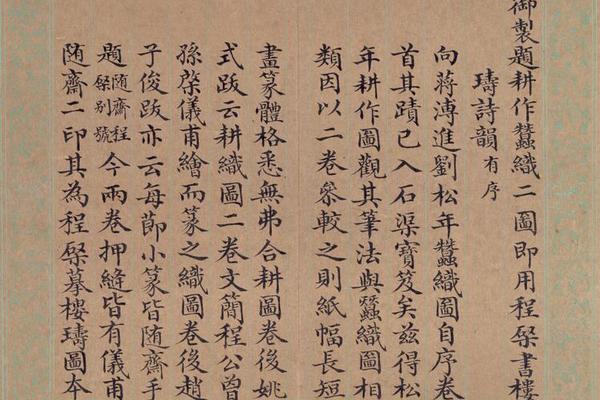 御製題耕作蠶織二圖即用程棨書樓
璹詩韻有序
向蔣溥進劉松年蠶織圖自序卷
首其蹟已入石渠寶笈矣兹得松
年耕作圖觀其筆法與蠶織圖相
類因以二卷叅較之則紙幅長短
畫篆體格悉無弗合耕圖卷後姚
式跋云耕織圖二卷文簡程公曾
孫棨儀甫繪而篆之織圖卷後趙
子俊跋亦云每莭小篆皆随齋手
題随齋程棨别號今兩卷押縫皆有儀甫
随齋二印其為程棨摹樓璹圖夲